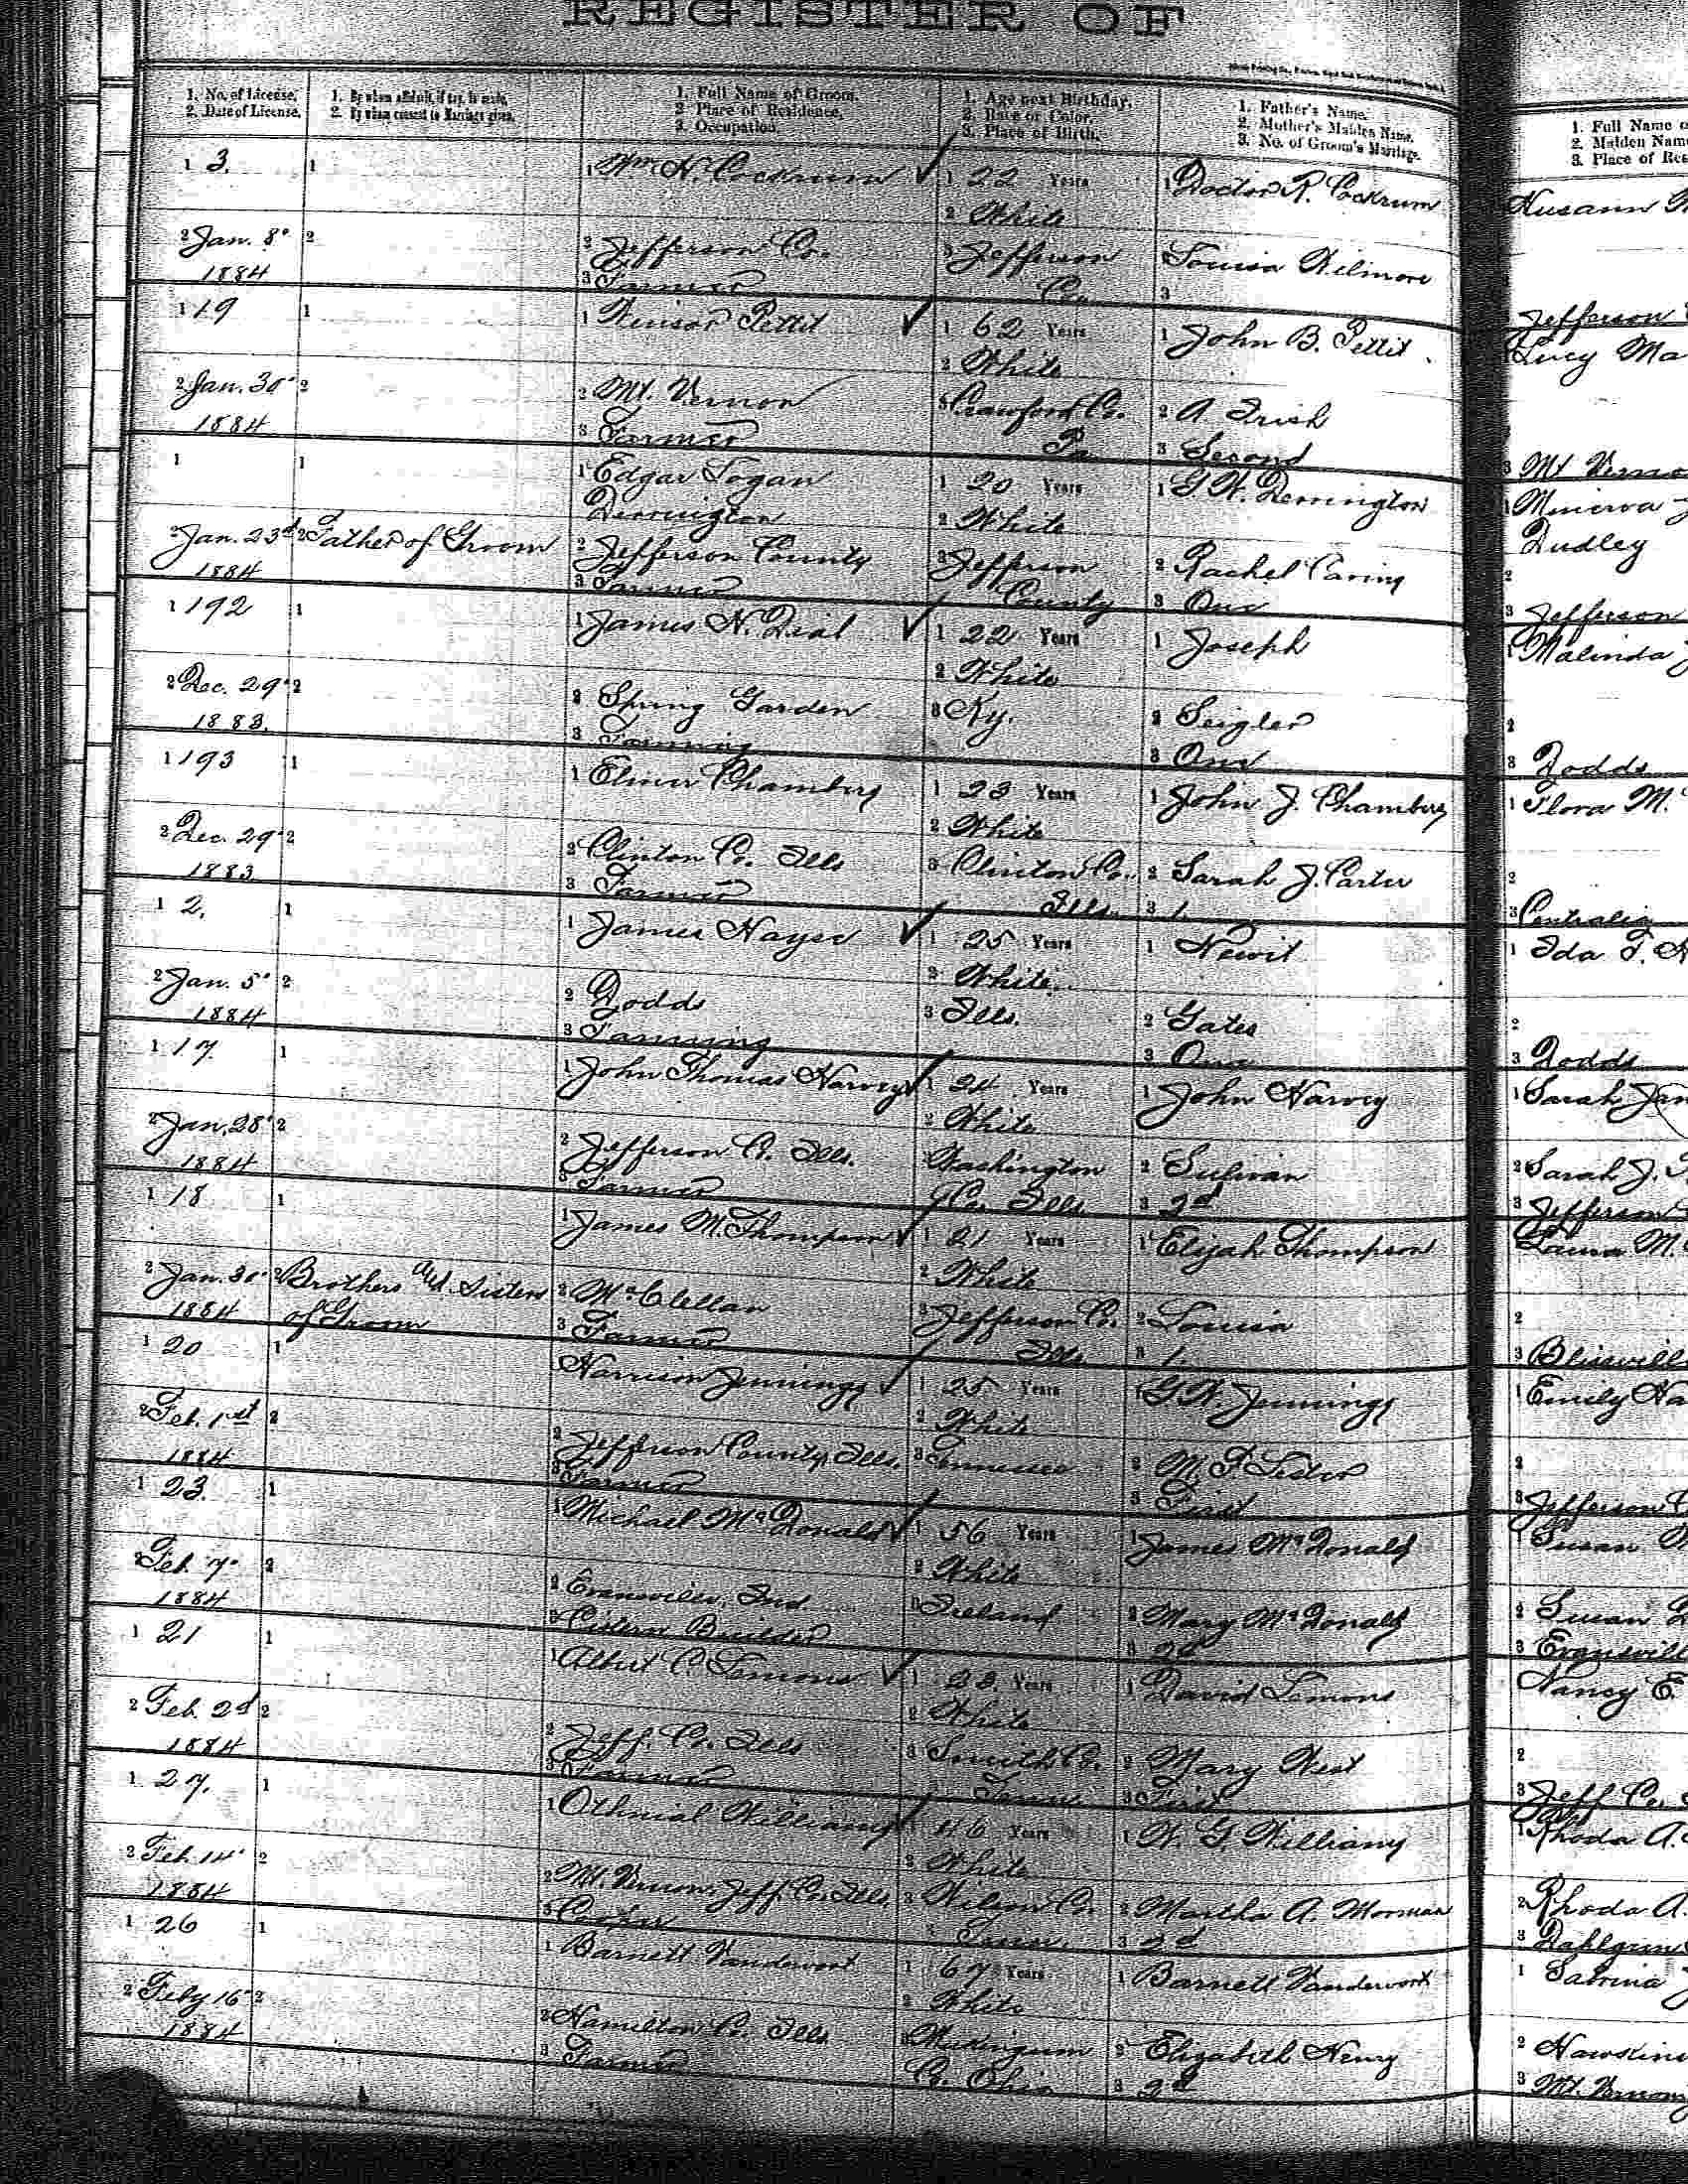 REGISTER OF
1. No. of License.
2. Date of License.
1. By whom affidavit, if any, is made.
2. By whom consent to Marriage given.
1. Full Name of Groom.
2 Place of Residence.
3. Occupation.
1. Age next Birthday.
2. Race or Color.
3. Place of Birth.
1. Father's Name.
2. Mother's Maiden Name.
3. No. of Groom's Marriage.
1. Full Name
2. Maiden Name
3. Place of Res
1 3. 1 1 Wm H. Cockrum 1 22 Years 1 Doctor R. Cockrum
2 White
2 Jan. 8" 2 2 Jefferson Co. 3 Jefferson Louisa
1884 3 Farmer Co. 3 Jefferson
1 19 1 1 Pettit 1 62 Years 1 John B. Pettit Lucy Ma
2 White
2 Jan. 30" 2 2 Mt. Vernon 3 Crawford Co. 2 A Irish
1884 3 Farmer Pa 3 Second 3 Mt Verno
1 1 1 Edgar Logan 1 20 Years 1 G. W. Derrington 1 Minerva
Derrington 2 White Dudley
2 Jan. 23d 2 Father of Groom 2 Jefferson County 3 Jefferson 2 Rachel 2
1884 3 Farmer County 3 One 3 Jefferson
1 192 1 1 James H. Dial 1 22 Years 1 Joseph 1 Malinda
2 White
2 Dec. 29" 2 2 Spring Garden 3 Ky. 2 Seigler 2
1883. 3 Farming 3 One 3 Dodds
1 193 1 1 Elmer Chambers 1 23 Years 1 John J. Chambers 1 Flora M.
2 White
2 Dec. 29" 2 2 Clinton Co. Ills 3 Clinton Co. 2 Sarah J. Carter 2
1883 3 Farmer Ills. 3 1. 3 Centralia
1 2. 1 1 James Hayse 1 25 Years 1 Newit 1 Ida F.
2 White
2 Jan. 5" 2 2 Dodds 3 Ills. 2 Gates 2
1884 3 Farming 3 One 3 Dodds
1 17 1 1 John Thomas Harvey 1 24 Years 1 John Harvey 1 Sarah Jan
2 White
2 Jan. 28" 2 2 Jefferson Co. Ills. Washington 2 Sulivan 2 Sarah J.
1884 3 Farmer Co. Ills 3 2d 3 Jefferson
1 18 1 1 James M. Thompson 1 21 Years 1 Elijah Thompson Laura M.
2 White
2 Jan. 30" 2 Brothers and Sisters 2 McClellan 3 Jefferson Co. 2 Louisa 2
1884 of Groom 3 Farmer Ills 3 1. 3 Blissvill
1 20 1 Harrison Jennings 1 25 Years 1 G. W. Jennings 1 Emily Ha
2 White
2 Feb. 1st 2 2 Jefferson County, Ills. 3 Tennessee 2 M. F. Lister 2
1884 3 Farmer 3 First 3 Jefferson C
1 23. 1 1 Michael McDonald 1 56 Years 1 James McDonald 1 Susan
2 White
2 Feb. 7" 2 2 Evansville, Ind 3 Ireland 2 Mary McDonald 2 Susan
1884 3 Cistern Builder 3 2d 3 Evansvill
1 21 1 1 Albert C. Lemons 1 23. Years 1 David Lemons Nancy E.
2 White
2 Feb. 2d 2 2 Jeff. Co. Ills 3 Smith Co. 2 Mary West 2
1884 3 Farmer Tenn 3 First 3 Jeff Co.
1 27. 1 1 Othnial Williams 1 46 Years 1 W. G. Williams 1 Rhoda A.
2 White
2 Feb. 14" 2 2 Mt. Vernon, Jeff. Co. Ills. 3 Wilson Co. 2 Martha A. Morman 2 Rhoda A.
1884 3 Cooper Tenn. 3 2d 3 Dahlgren
1 26 1 1 Barnett Vandervort 1 67 Years 1 Barnett Vandervort 1 Sabrina
2 White
2 Feby 16" 2 2 Hamilton Co. Ills 3 Muskingum 2 Elizabeth Henry 2 Hawkins
1884 3 Farmer Co. Ohio 3 2d 3 Mt. Vernon